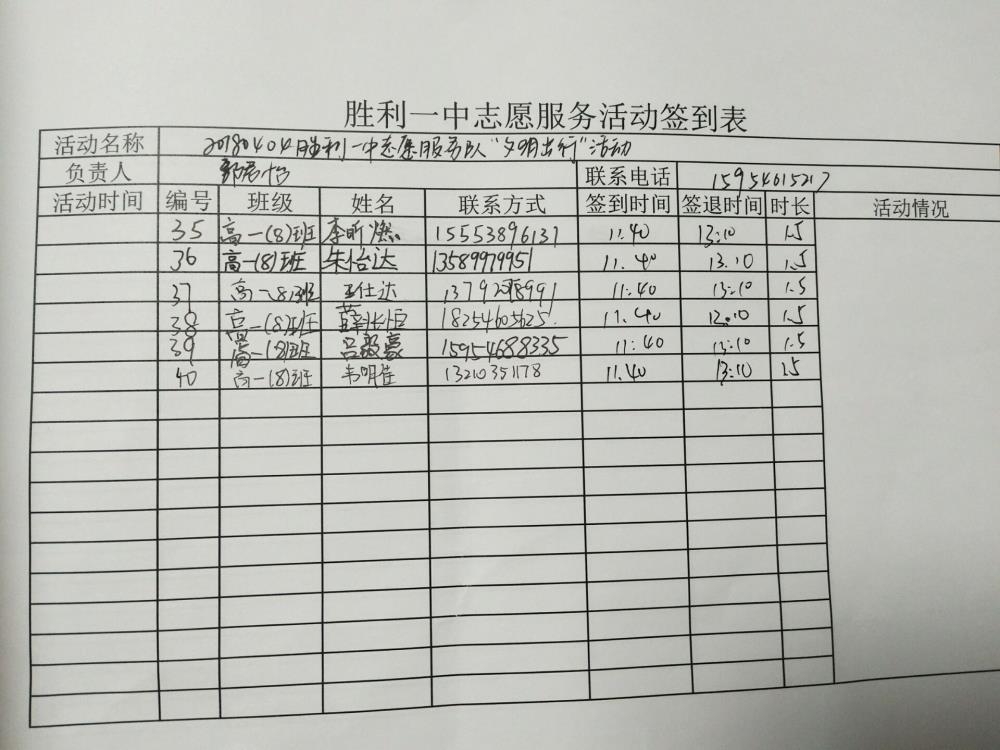 胜利一中志愿服务活动签到表
活动名称 20180404胜利一中志愿服务队"文明出行"活动
负责人 郭君怡 联系电话 15954615217
活动时间 编号 班级 姓名 联系方式 签到时间 签退时间 时长 活动情况
35 高一(8)班 李昕燃 15553896137 11.40 13:10 1.5
36 高一(8)班 朱怡达 13589979951 11.40 13.10 1.5
37 高一(8)班 王仕达 11:40 13:10 1.5
38 高一(8)班 薛长恒 18254605625 11.40 1.5
39 高一(8)班 吕毅豪 15954688335 11:40 13:10 1.5
40 高一(8)班 韦明佳 13210351178 11.40 13:10 1.5